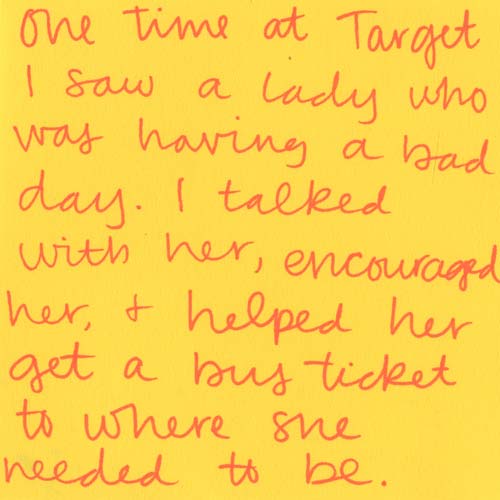 One time at Target
I saw a lady who
was having a bad
day. I talked
with her, encouraged
her, + helped her
get a bus ticket
to where she
needed to be.